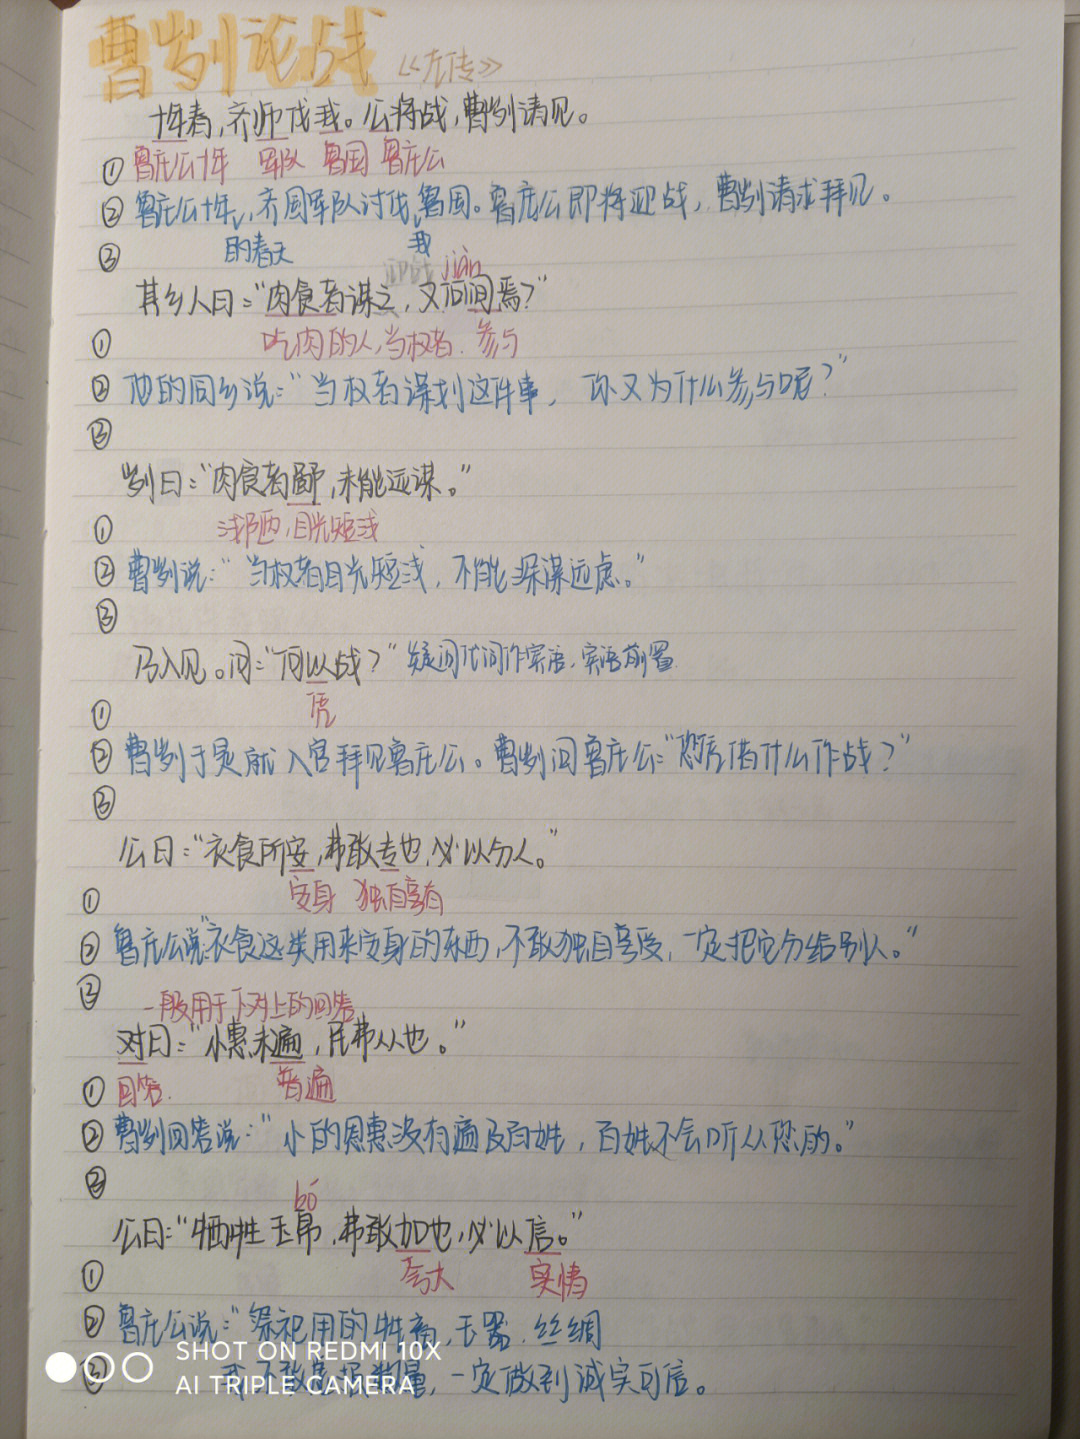 曹刿论战 《左传》
十年春，齐师伐我。公将战，曹刿请见。
① 鲁庄公十年 军队 鲁国 鲁庄公
② 鲁庄公十年，齐国军队讨伐鲁国。鲁庄公即将迎战，曹刿请求拜见。
③ 的春天 我
迎战 jiàn
其乡人曰："肉食者谋之，又何间焉？"
① 吃肉的人，当权者. 参与
② 他的同乡说："当权者谋划这件事，你又为什么参与呢？"
③
刿曰："肉食者鄙，未能远谋。"
① 浅陋，目光短浅
② 曹刿说："当权者目光短浅，不能深谋远虑。"
③
乃入见。问："何以战？" 疑问代词作宾语，宾语前置
① 凭
② 曹刿于是就入宫拜见鲁庄公。曹刿问鲁庄公："您凭借什么作战？"
③
公曰："衣食所安，弗敢专也，必以分人。"
① 安身 独自享有
② 鲁庄公说："衣食这类用来安身的东西，不敢独自享受，一定把它分给别人。"
③ 一般用于下对上的回答
对曰："小惠未遍，民弗从也。"
① 回答. 普遍
② 曹刿回答说："小的恩惠没有遍及百姓，百姓不会听从您的。"
③
bó
公曰："牺牲玉帛，弗敢加也，必以信。"
① 夸大 实情
② 鲁庄公说："祭祀用的牲畜，玉器，丝绸
③ 我不敢虚报数量，一定做到诚实可信。
SHOT ON REDMI 10X
AI TRIPLE CAMERA